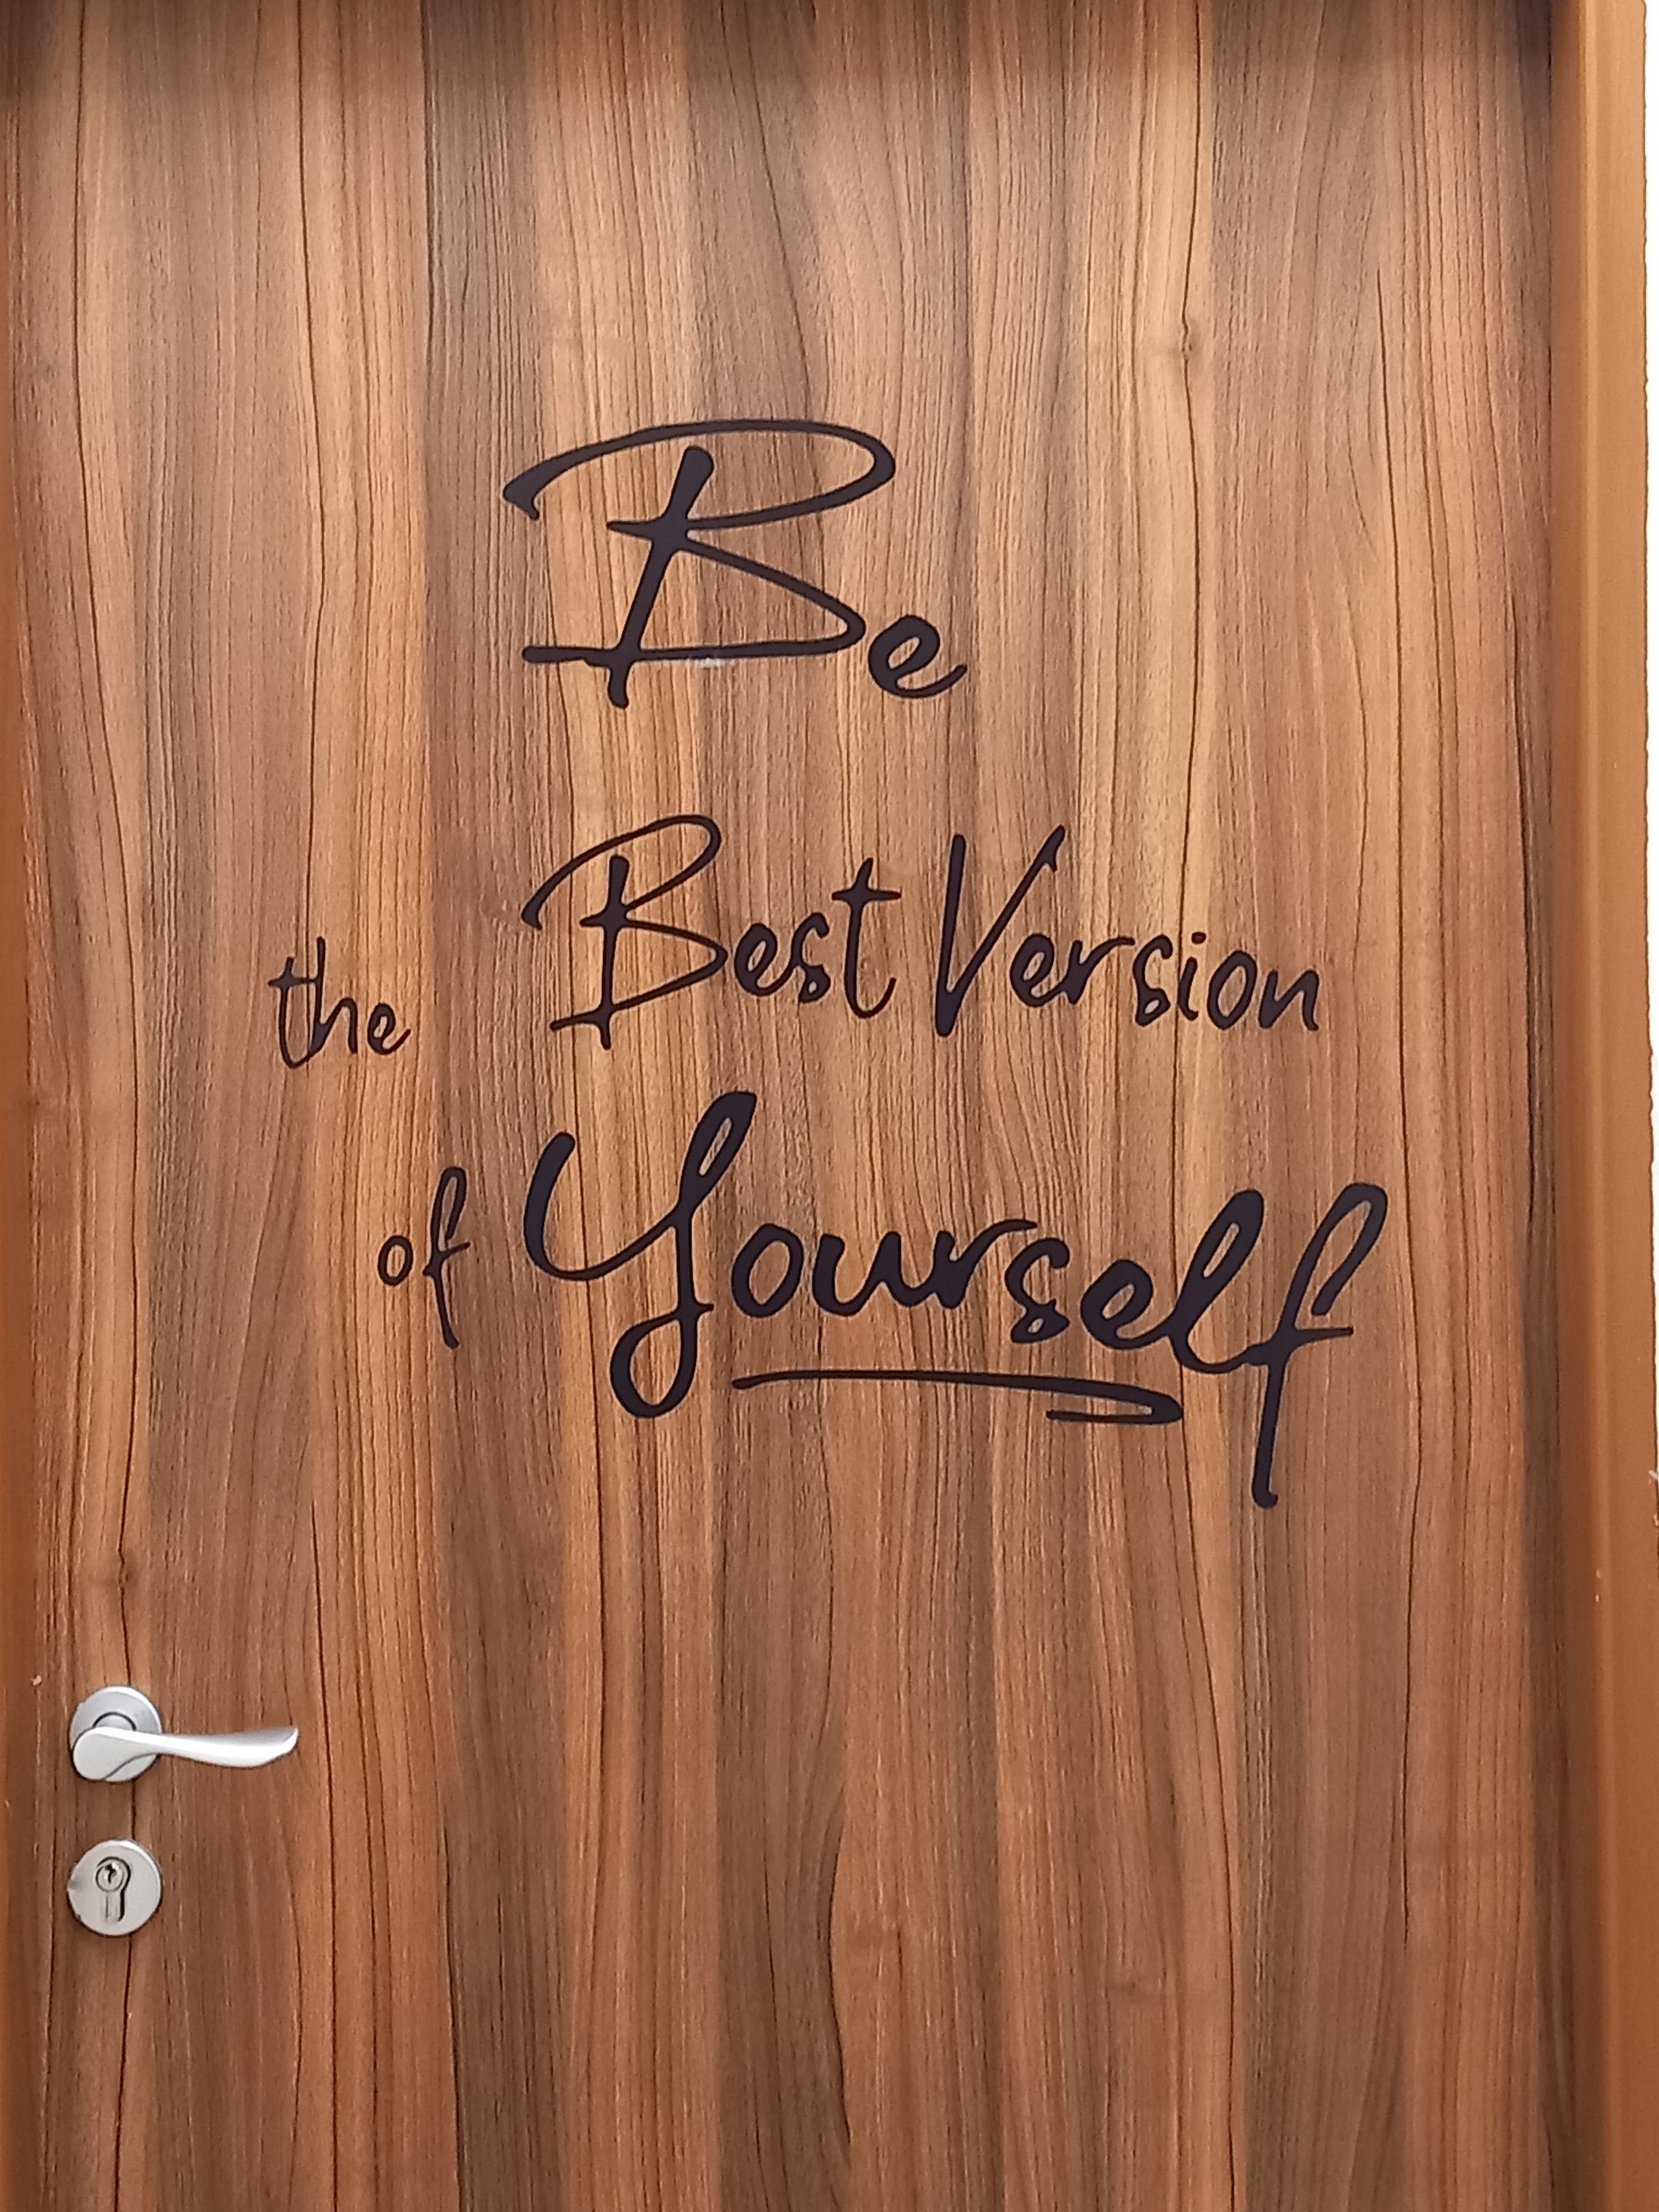 Be
the Best Version
of Yourself